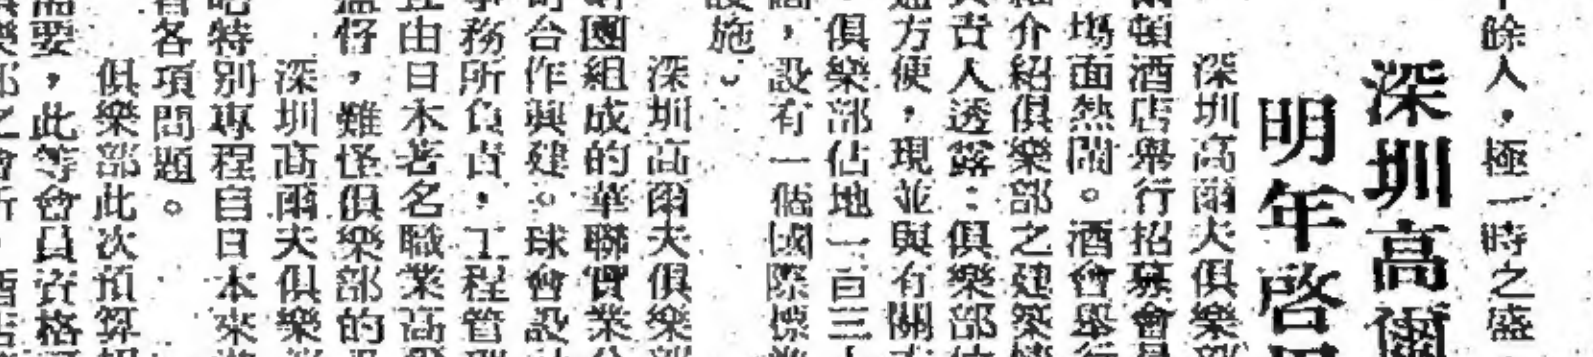 餘人，極一時之盛
深圳高爾
明年啓
深圳高爾夫俱樂部
頓酒店舉行招募會員
場面熱鬧。酒會舉行
介紹俱樂部之建築
責人透露：俱樂部
方便，現並與有關
俱樂部佔地一百三十
，設有一個國際標準
施。
深圳高爾夫俱樂部
團組成的華聯實業公
合作興建。球會設計
務所負責，工程管理
由日本著名職業高
，難怪俱樂部的
深圳高爾夫俱樂
特別專程自日本來
各項問題。
俱樂部此次預算招
需要，此等會員資格
部之會所，酒店